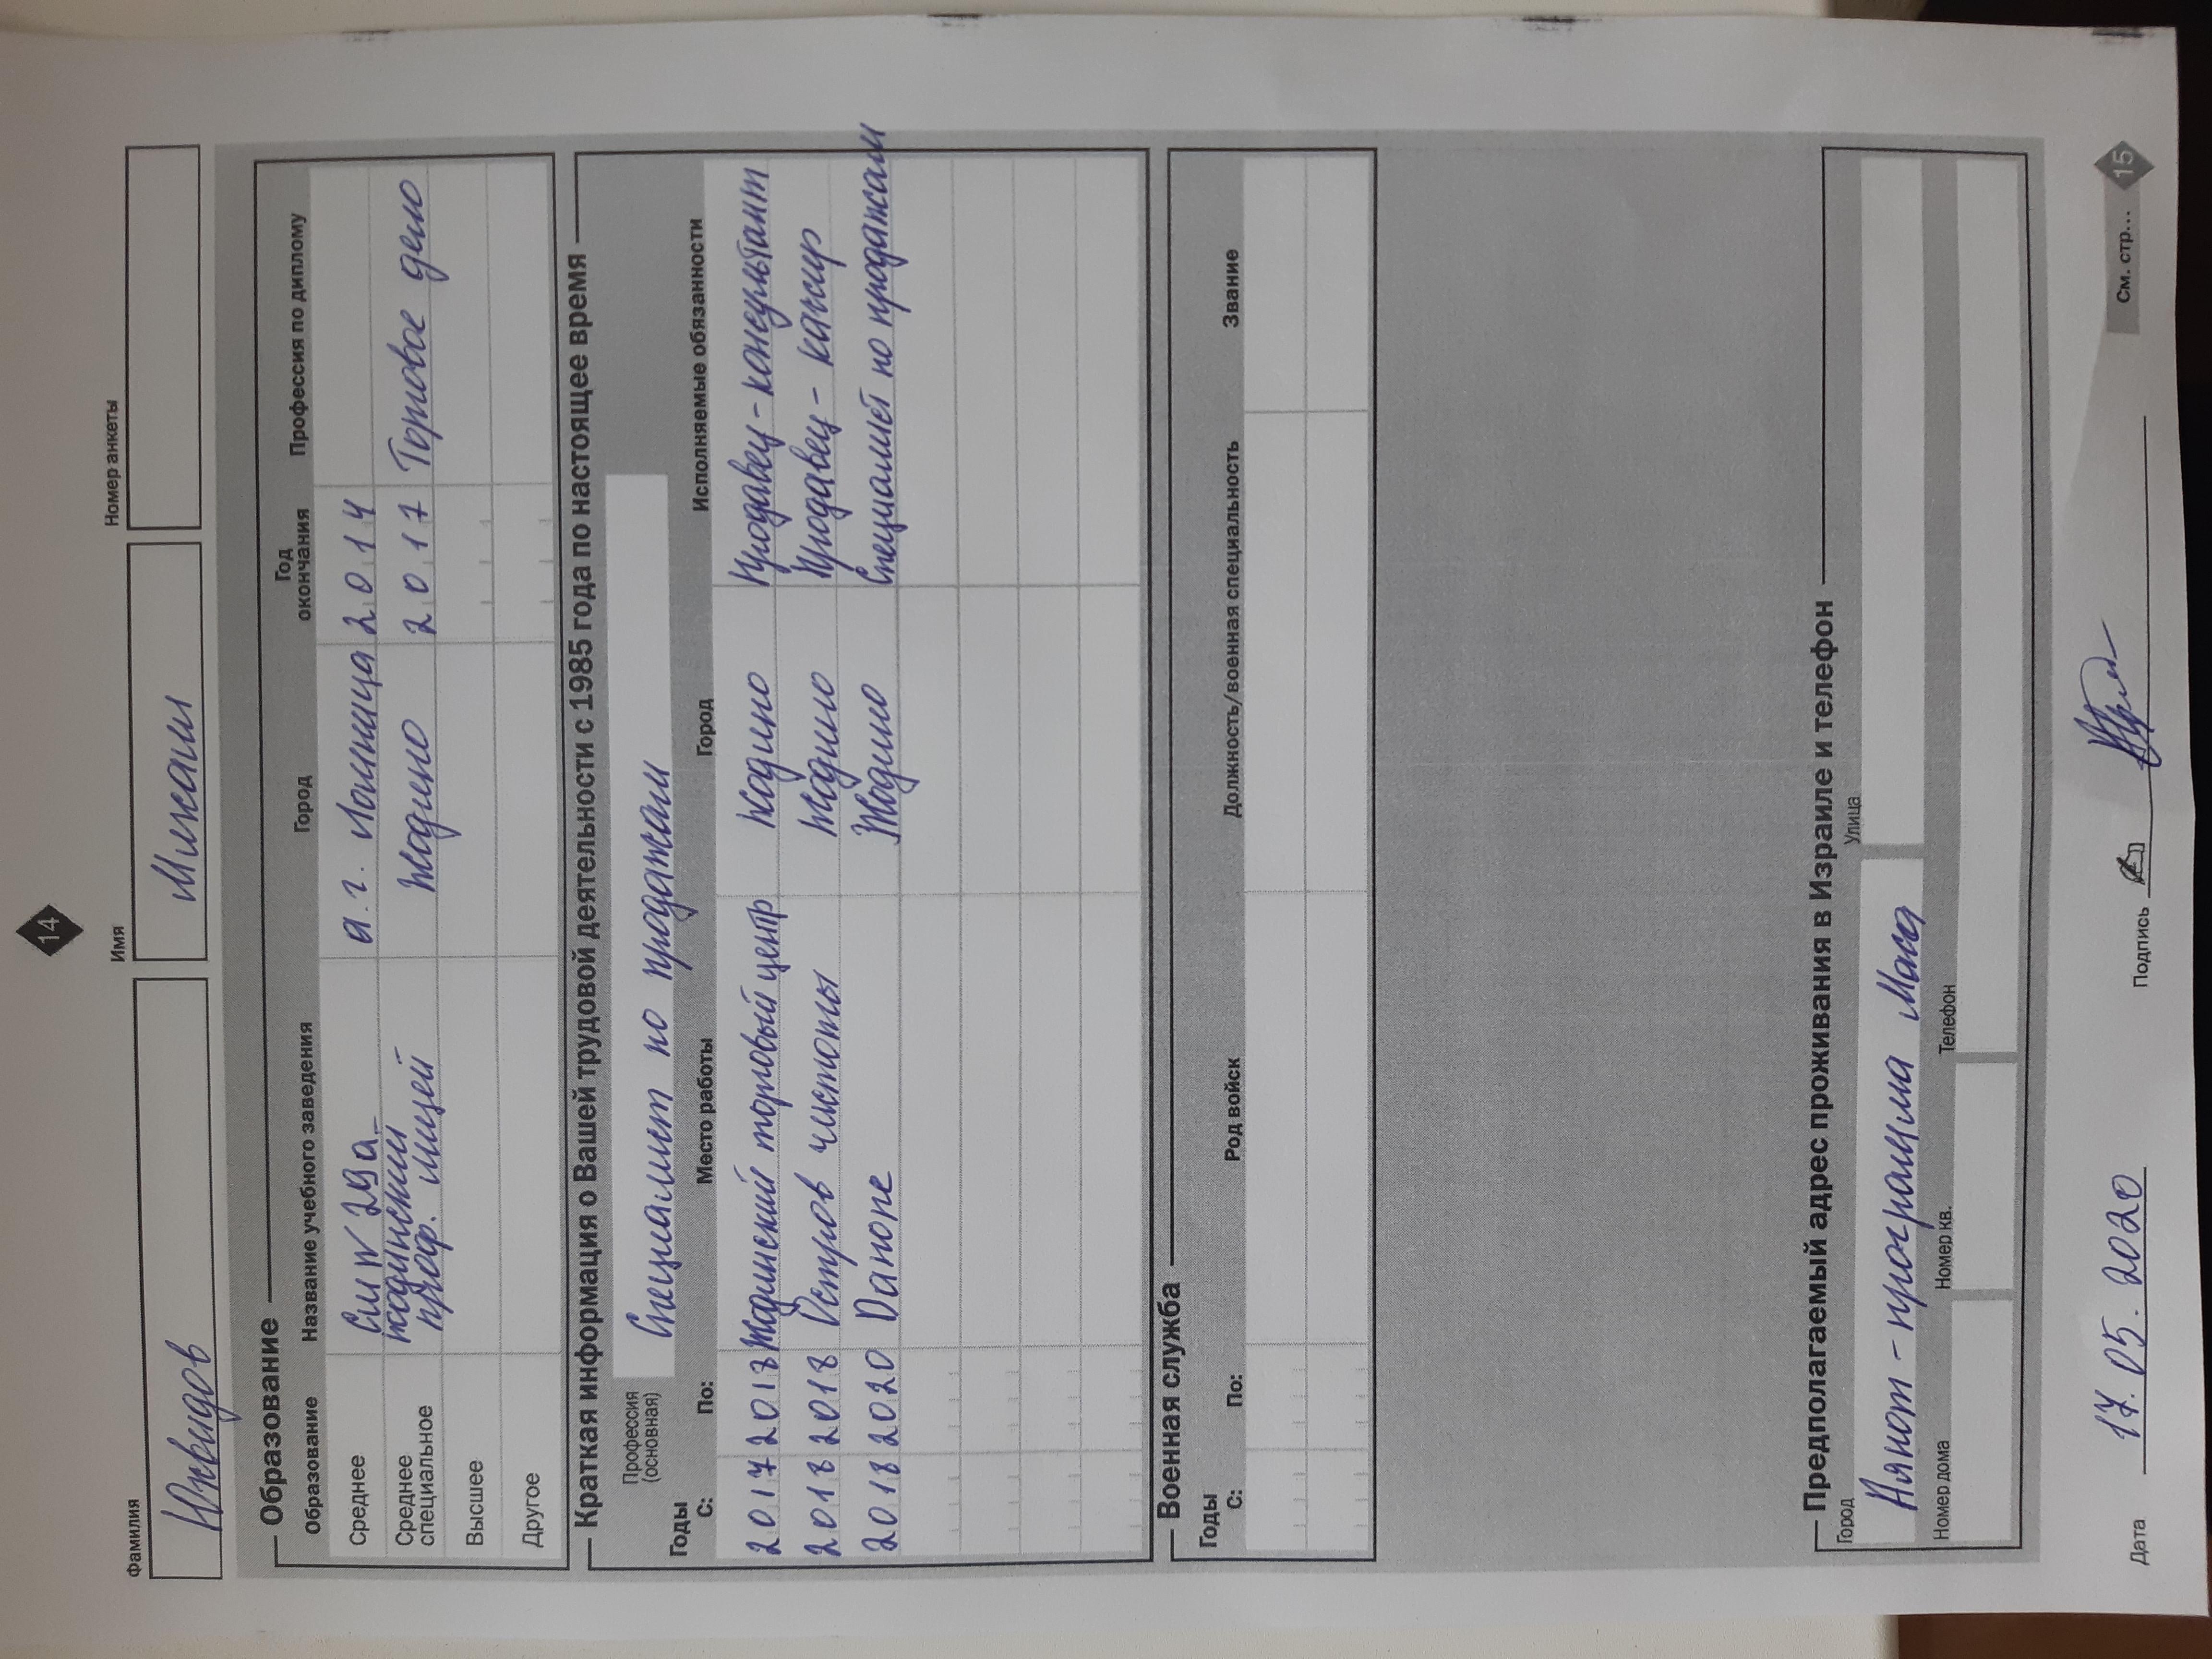 14
Фамилия Имя Номер анкеты
Юхвидов Михаил
Образование
Образование Название учебного заведения Город Год окончания Профессия по диплому
Среднее а.г. Лошница 2014
Среднее специальное Жодинский проф. лицей Жодино 2017 Торговое дело
Высшее
Другое
Краткая информация о Вашей трудовой деятельности с 1985 года по настоящее время
Профессия (основная) Специалист по продажам
Годы
С: По: Место работы Город Исполняемые обязанности
2017 2018 Жодинский торговый центр Жодино Продавец-консультант
2018 2018 Остров чистоты Жодино Продавец-кассир
2018 2020 Danone Жодино Специалист по продажам
Военная служба
Годы
С: По: Род войск Должность/военная специальность Звание
Предполагаемый адрес проживания в Израиле и телефон
Город Улица
Аянот-программа Маса
Номер дома Номер кв. Телефон
Дата 17.05.2020 Подпись См. стр... 15